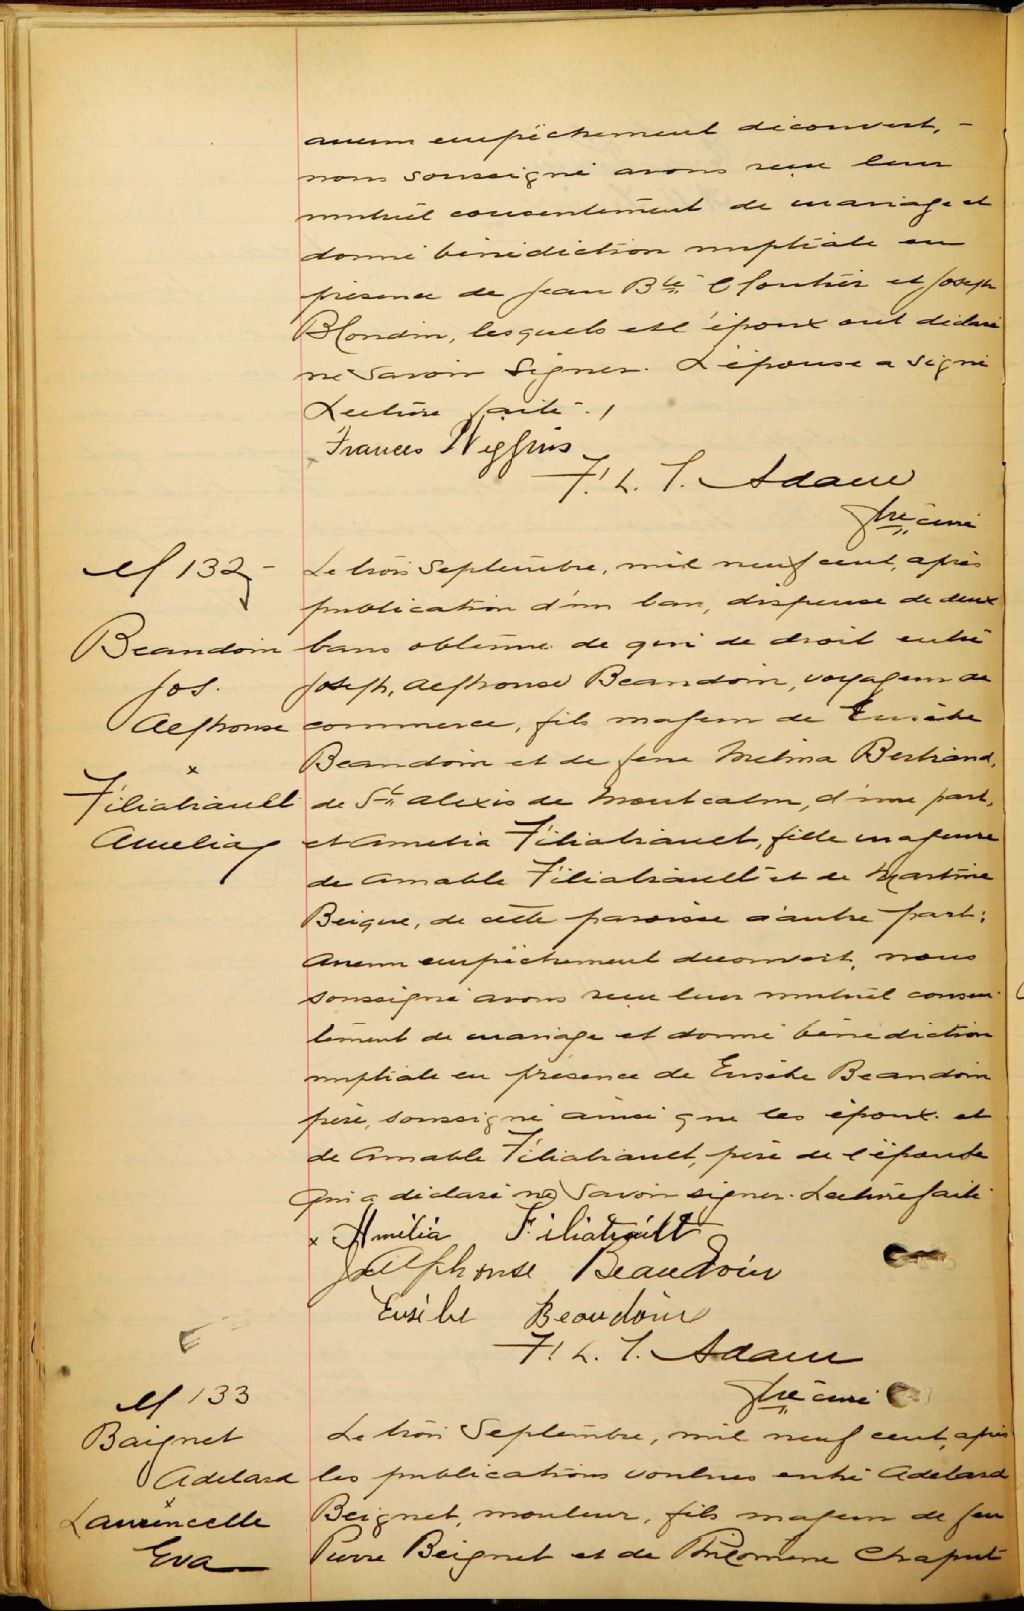 aucun empêchement découvert, -
nous soussigné avons reçu leur
mutuel consentement de mariage et
donné bénédiction nuptiale en
présence de Jean Bte Cloutier et Joseph
Blondin, lesquels et l'époux ont déclaré
ne savoir signer. L'épouse a signé
Lecture faite.
Frances Wiggins
F. L. T. Adam
ptre curé
M 132
Beaudoin
Jos.
Alphonse
x
Filiatrault
Amelia
Le trois Septembre, mil neuf cent, après
publication d'un ban, dispense de deux
bans obtenue de qui de droit entre
Joseph, Alphonse Beaudoin, voyageur de
commerce, fils majeur de Eusèbe
Beaudoin et de feue Melina Bertrand,
de St Alexis de Montcalm, d'une part,
et Amelia Filiatrault, fille majeure
de Amable Filiatrault et de Martine
Beique, de cette paroisse d'autre part;
Aucun empêchement découvert, nous
soussigné avons reçu leur mutuel consen-
tement de mariage et donné bénédiction
nuptiale en présence de Eusèbe Beaudoin
père, soussigné ainsi que les époux et
de Amable Filiatrault, père de l'épouse
qui a déclaré ne savoir signer. Lecture faite.
x Amélia Filiatrault
Jos Alphonse Beaudoin
Eusèbe Beaudoin
F. L. T. Adam
ptre curé
M 133
Baignet
Adelard
x
Laurincelle
Eva
Le trois Septembre, mil neuf cent, après
les publications voulues entre Adelard
Beignet, mouleur, fils majeur de feu
Pierre Beignet et de Philomène Chaput